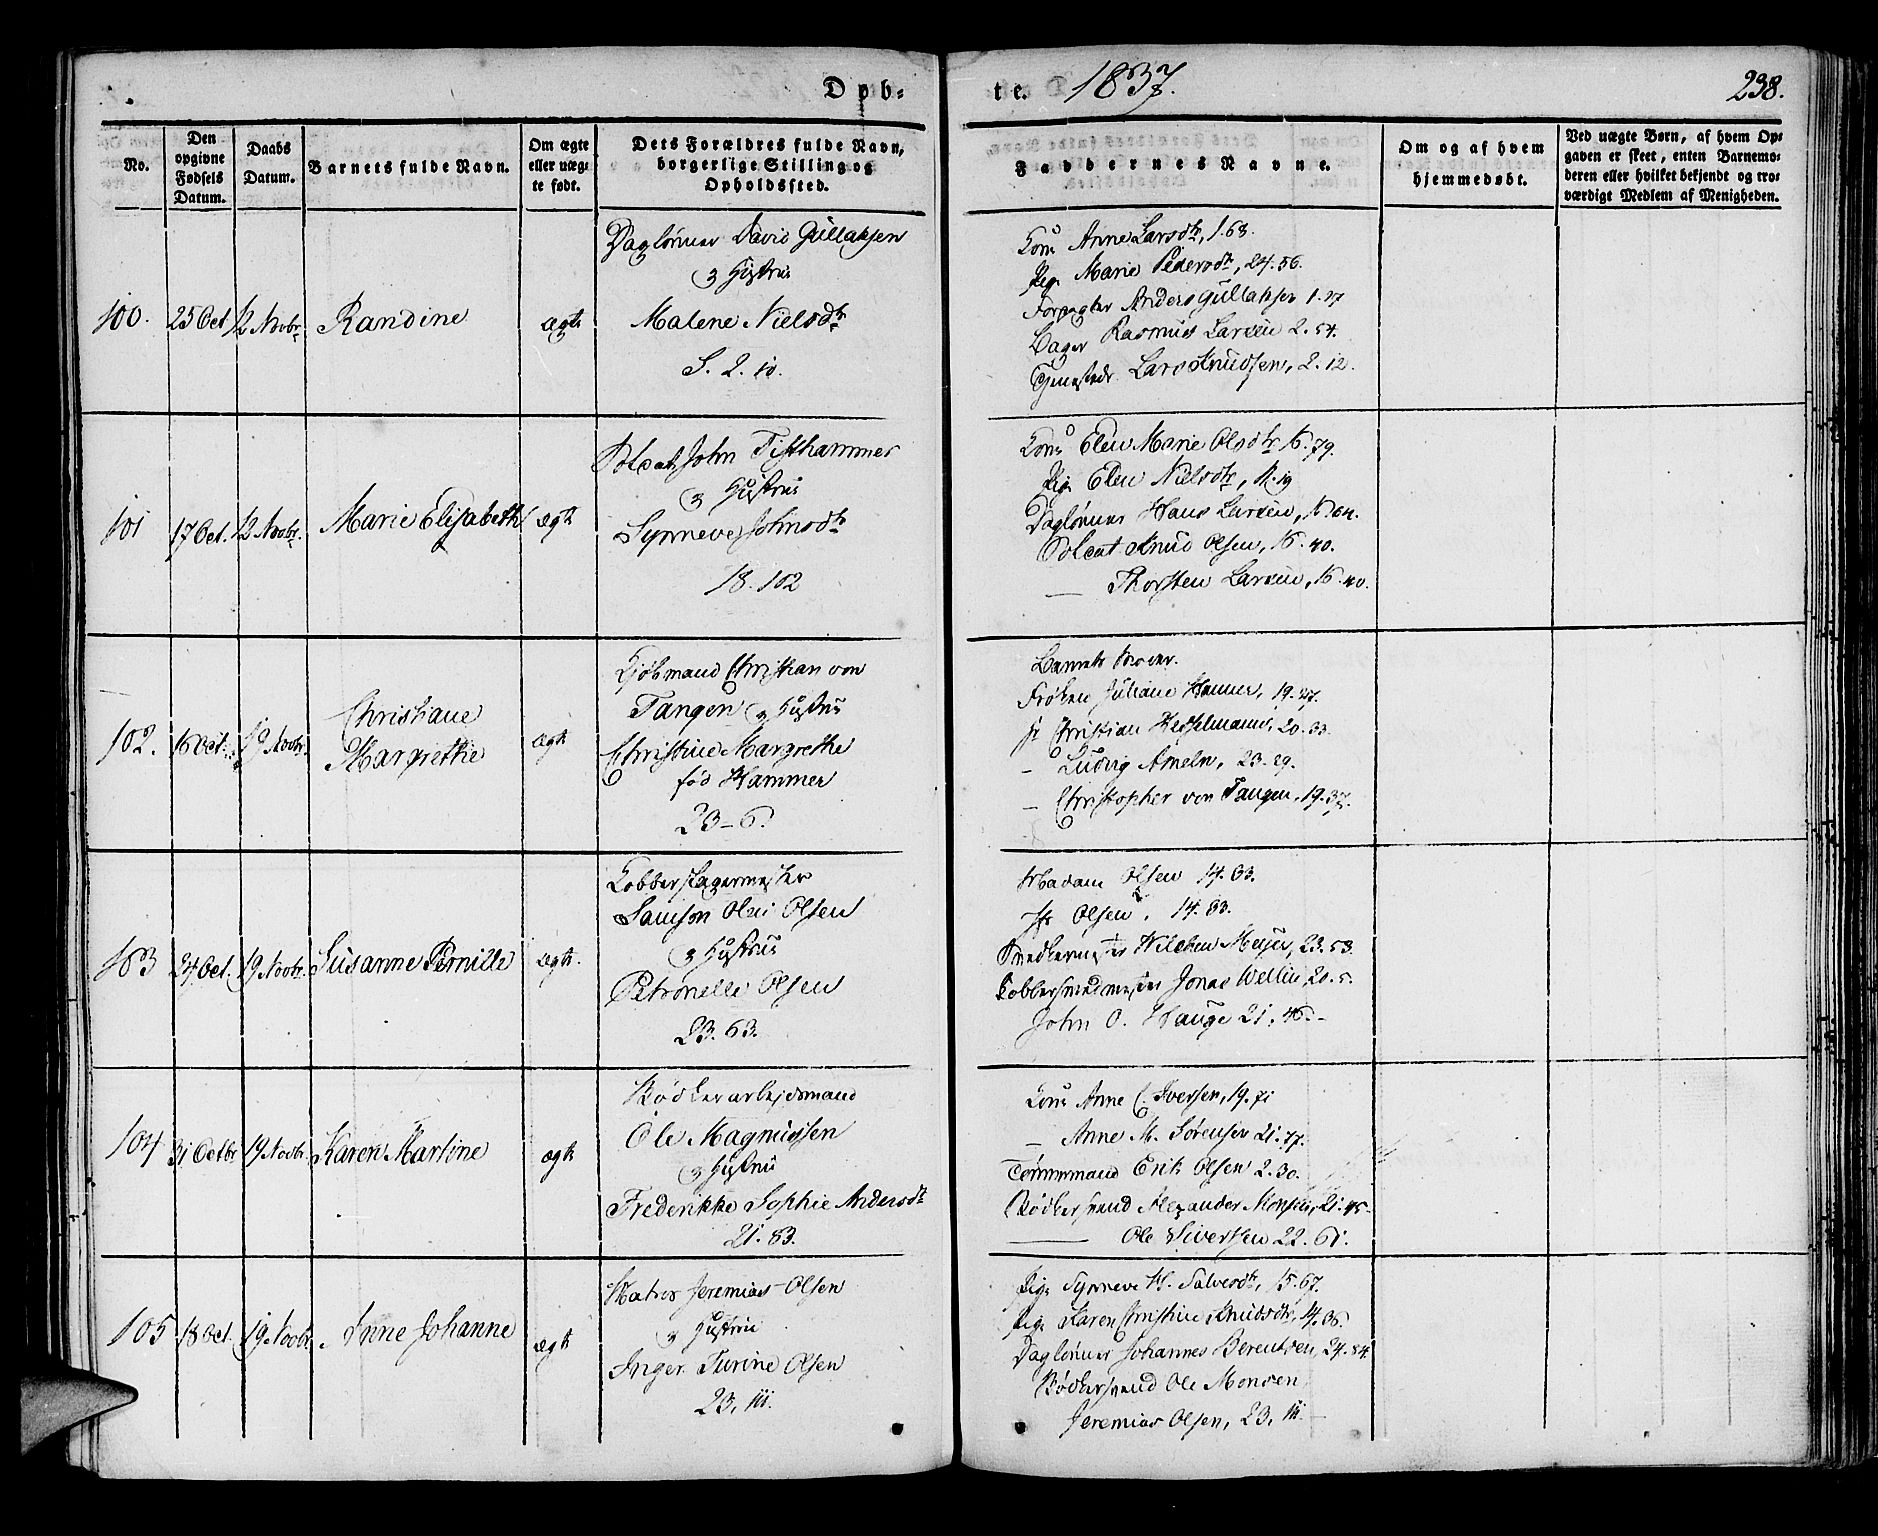 Døb-
te. 1837.
238.
No.
Den opgivne Fødsels Datum.
Daabs Datum.
Barnets fulde Navn.
Om ægte eller uægte født.
Dets Forældres fulde Navn, borgerlige Stilling og Opholdssted.
Faddernes Navne.
Om og af hvem hjemmedøbt.
Ved uægte Børn, af hvem Opgaven er skeet, enten Barnemoderen eller hvilket bekjendt og troværdigt Medlem af Menigheden.
100. 25 Oct 12 Novbr. Randine ægte
Daglønner David Gullaksen
& Hustrue
Malene Nielsdtr
S. 2. 10.
Kone Anne Larsdtr, 1.68.
Pige Marie Pedersdtr, 24.56.
Forpagter Anders Gullaksen 1.27
Bager Rasmus Larsen 2.54.
Tjenestedr. Lars Knudsen, 2.12.
101 17 Oct. 12 Novbr. Marie Elisabeth ægte
Soldat John Tisthammer
& Hustrue
Synneve Johnsdtr
18. 102
Kone Elen Marie Olsdtr 16.79.
Pige Elen Nielsdtr,
Daglønner Hans Larsen, 16.64.
Soldat Knud Olsen, 16.40.
— Thorsten Larsen, 16.40.
102. 16 Oct. 19 Novbr. Christiane Margrethe ægte
Kjøbmand Christian von
Tangen & Hustrue
Christine Margrethe
fød Hammer
23-6.
Barnets Moder.
Frøken Juliane Hammer, 19.37.
Hr Christian Hesselmann, 20.33.
— Ludvig Ameln, 23.29.
— Christopher von Tangen, 19.37.
103 24 Oct. 19 Novbr. Susanne Pernille ægte.
Kobberslagermester
Samson Olai Olsen
& Hustrue
Petronelle Olsen
23. 63.
Madam Olsen 14.83.
Hr Olsen, 14.83.
Snedkermester Wilchen Mejer, 23.53.
Kobbersmedmester Jonas Wellin, 20.5.
John O. Hauge 21.46.-
104 31 Octbr 19 Novbr. Karen Martine ægte
Bødkerarbejdsmand
Ole Magnussen
& Hustrue
Frederikke Sophie Andersdtr
21. 83.
Kone Anne C. Iversen, 19.71
— Anne M. Sørensen 21.77.
Tømmermand Erik Olsen 2.30.
Bødkersvend Alexander Monsen, 21.45-
— Ole Sivertsen 22.61.
105 18 Oct. 19 Novbr. Anne Johanne ægte
Matros Jeremias Olsen
& Hustrue
Inger Turine Olsen
23, 111.
Pige Synneve M. Salvesdtr, 15.67.
Pige Karen Christine Knudsdtr, 4.36.
Daglønner Johannes Berentsen, 24.84
Bødkersvend Ole Monsen
Jeremias Olsen, 23, 111.